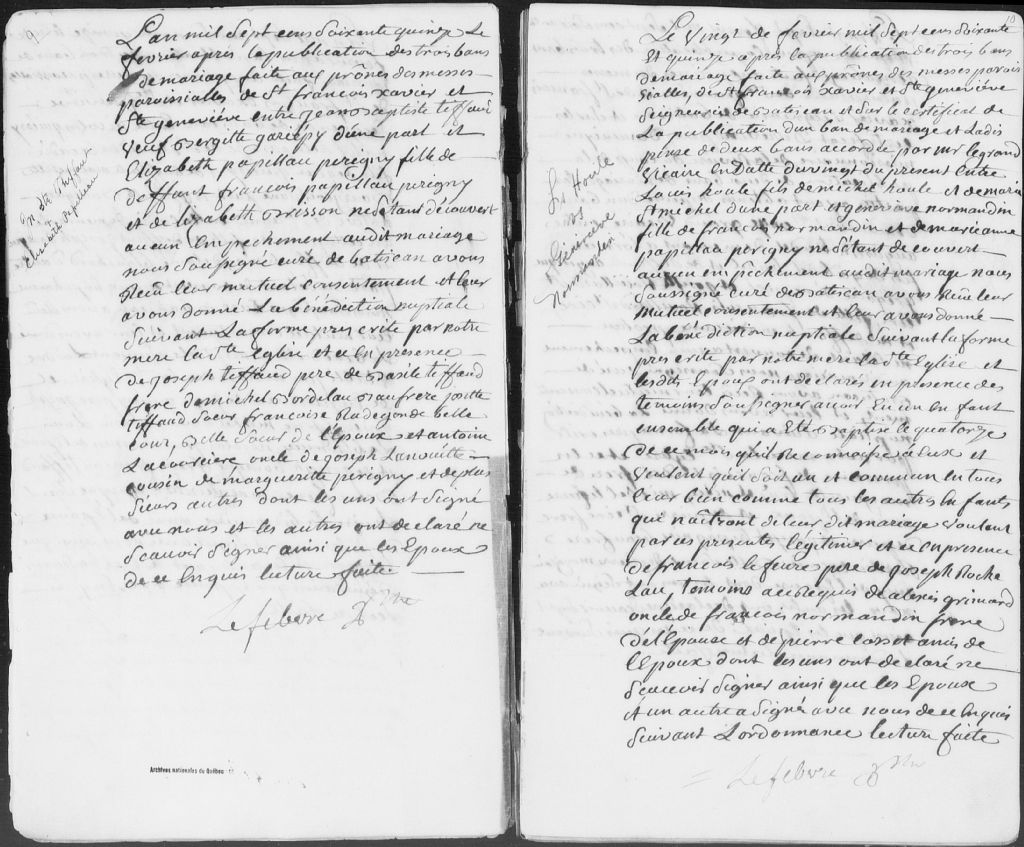 9
L'an mil sept cens soixante quinze Le
fevrier après la publication des trois bans
de mariage faite aux prônes des messes
paroissialles de St françois Xavier et
Ste geneviéve entre jean Baptiste tiffaud
veuf Brigitte gariépy d'une part et
Elizabeth papillau perigny fille de
deffunt françois papillau périgny
et de Elizabeth Brisson ne s'étant découvert
aucun Empechement audit mariage
nous Soussigné curé de batiscan avons
Reçu leur mutuel consentement et leur
avons donné La bénédiction nuptiale
Suivant La forme prescrite par notre
mere La Ste Eglise et ce En presence
de joseph tiffaud pere de Basile tiffaud
frere de michel Bordelau Beaufrere josette
tiffaud Soeur françoise Radegonde belle
cour, Belle Soeur de l'Epoux et antoine
Lacoursiere oncle de joseph Lanouitte
cousin de marguerite périgny et de plu
sieurs autres dont les uns ont Signé
avec nous et les autres ont declaré ne
Scavoir Signer ainsi que les Epoux
de ce Enquis lecture faite
Lefebvre ptre
M. de J. B. tiffaut
Elizabeth Papillau
Archives nationales du Québec
10
Le vingt de fevrier mil sept cens Soixante
Et quinze après la publication des trois bans
de mariage faite aux prônes des messes parois
sialles, de St françois Xavier et Ste geneviève
Seigneurie de Batiscan et Sur le certificat de
La publication d'un ban de mariage et La dis
pense de deux bans accordé par mr le grand
Vicaire En Datte du vingt du présent Entre
Louis houle fils de michel houle et de marie
St michel d'une part et geneviève normandin
fille de françois normandin et de marie anne
papillau périgny ne s'étant decouvert
aucun empêchement audit mariage nous
Soussigné curé de Batiscan avons Reçu leur
Mutuel consentement et leur avons donné
La béné diction nuptiale Suivant la forme
prescrite par notre mere la Ste Eglise et
lesdits Epoux ont declarés en presence des
temoins Soussigner avoir Eu un En fant
ensemble qui a Eté Baptisé le quatorze
de ce mois qu'il Reconnoisse à Eux et
Veulent qu'il Soit un et commun En tous
leur bien comme tous les autres En fants
qui naîtront de leur dit mariage Voulant
par ces presentes légitimer et ce En presence
de françois lefevre pere de joseph Roche
Lau, temoins au Requis de alexis grimard
oncle de françois normandin frere
de l'Epouse et de pierre cossot amis de
l'Epoux dont les uns ont declaré ne
Scavoir Signer ainsi que les Epoux
et un autre a Signé avec nous de ce Enquis
Suivant L'ordonnance lecture faite
Lefebvre ptre
Ls houle
vs
Geneviève
Normandin